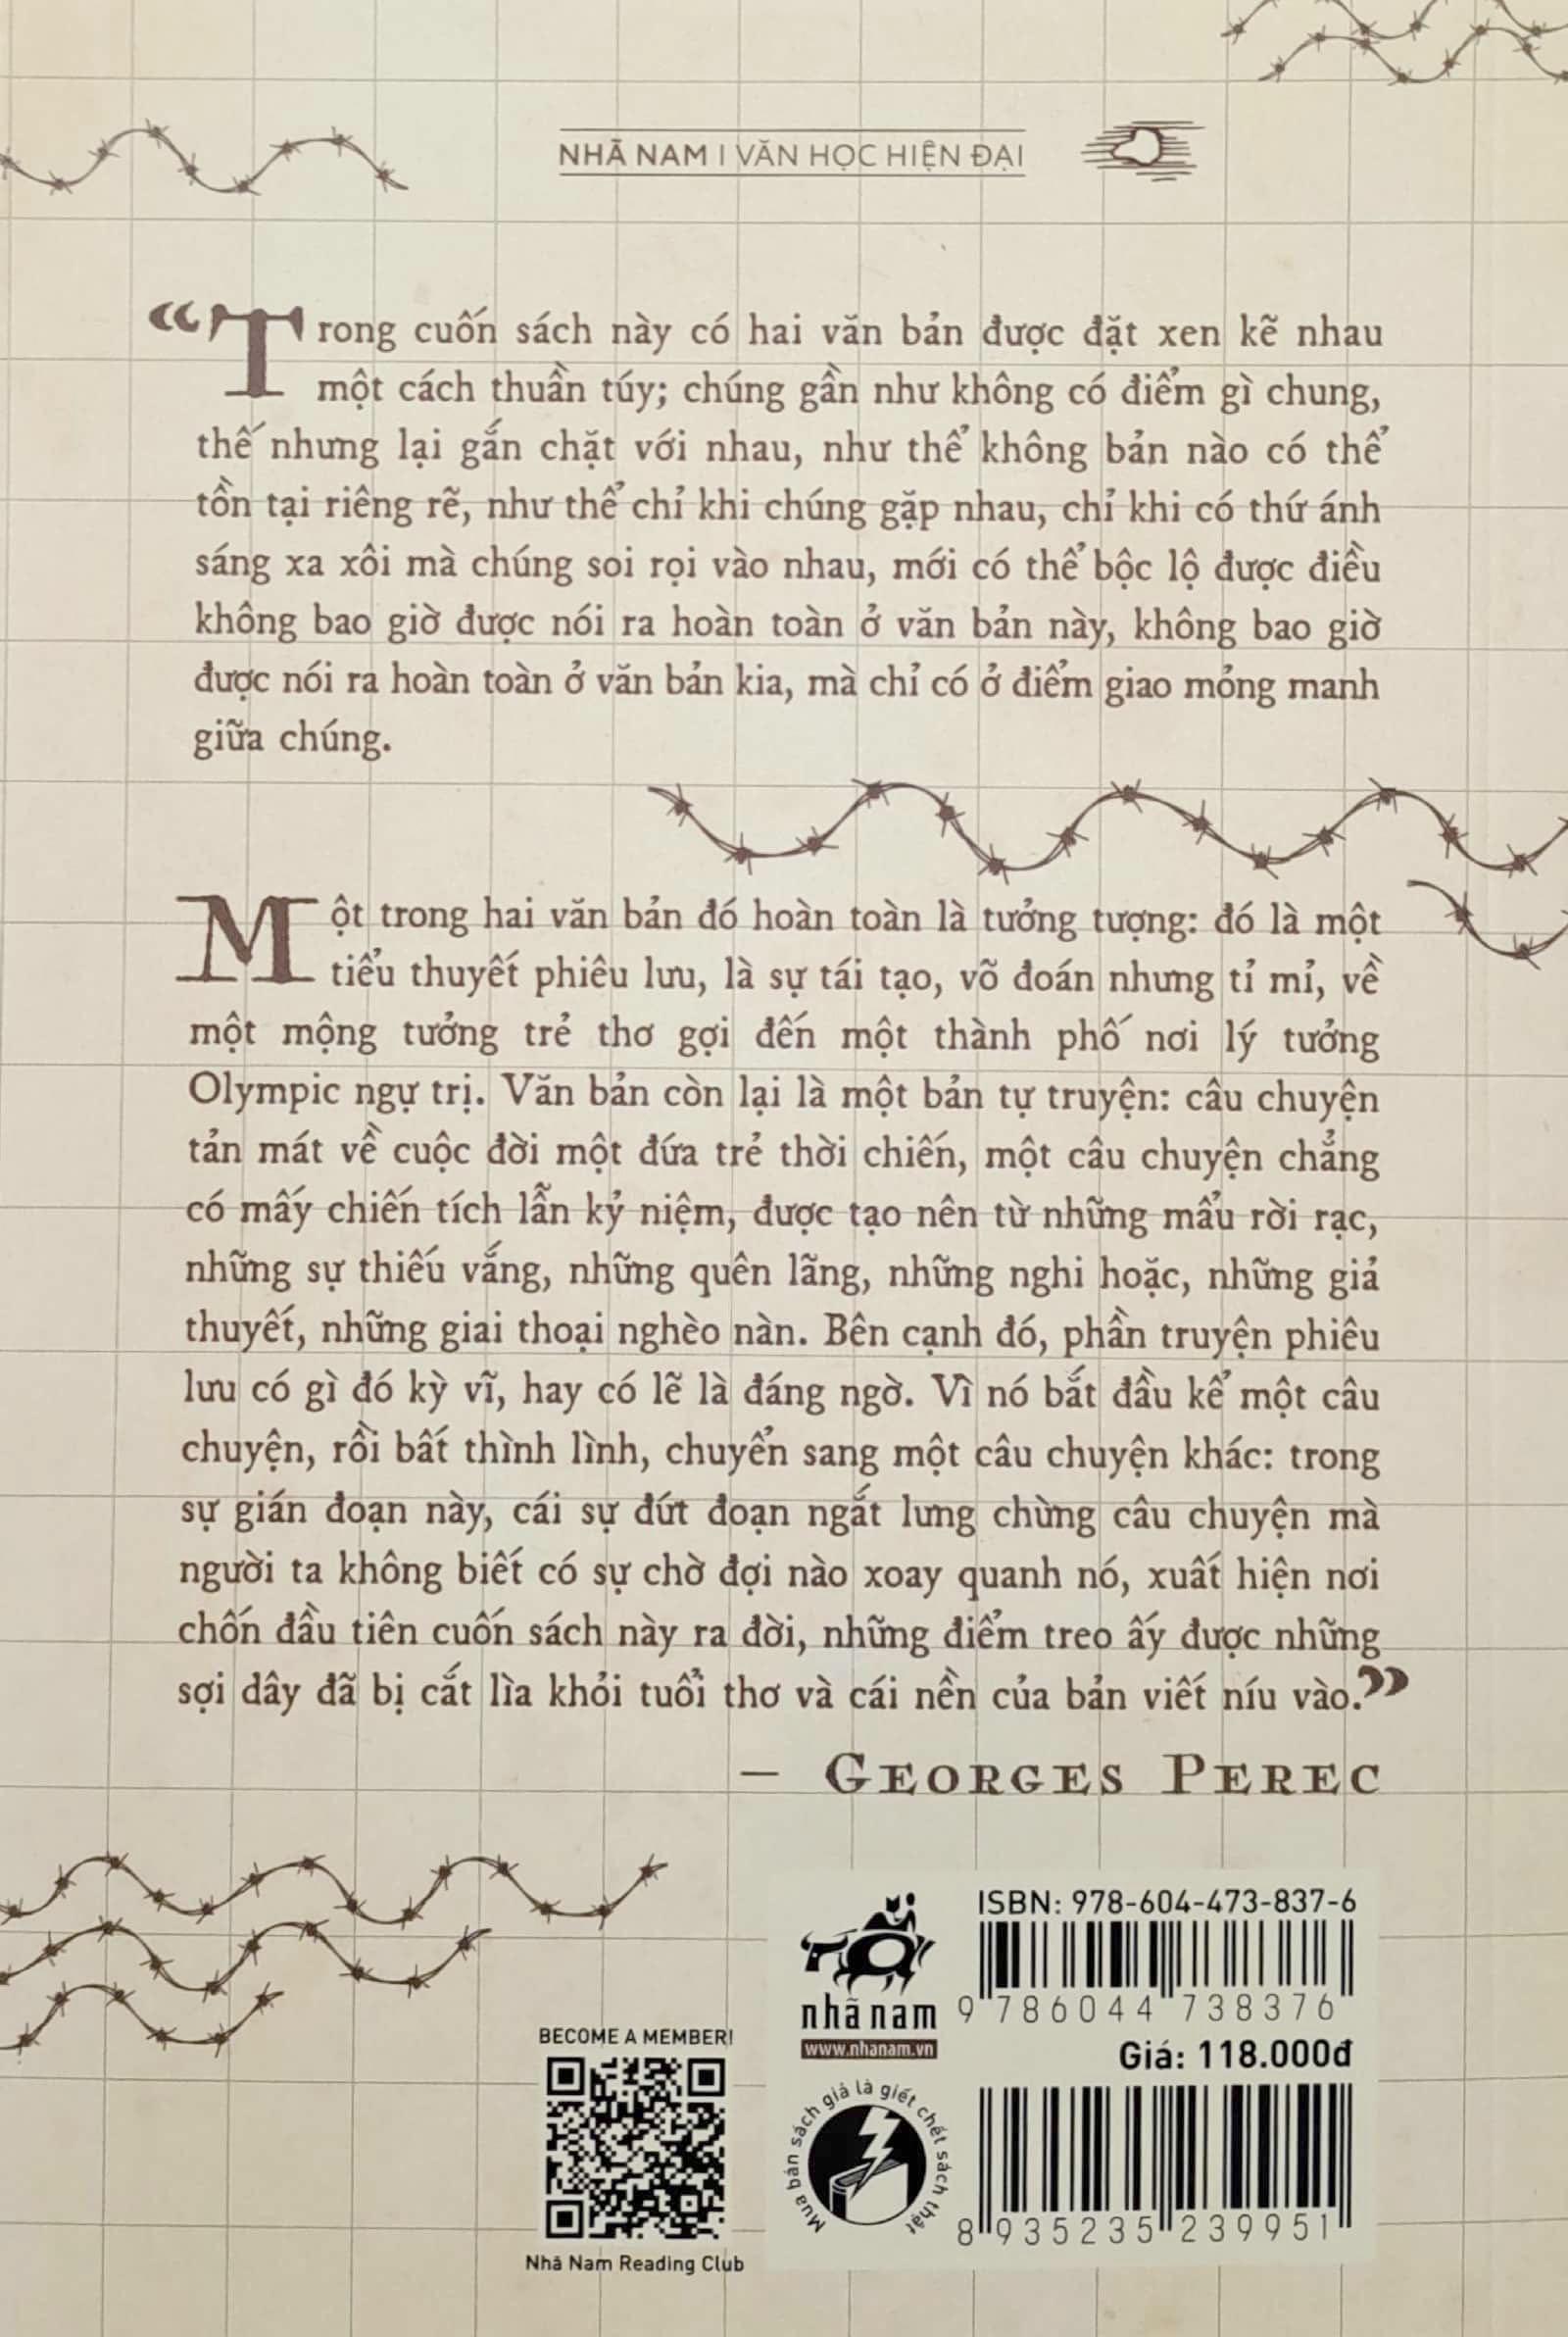 NHÃ NAM | VĂN HỌC HIỆN ĐẠI
“Trong cuốn sách này có hai văn bản được đặt xen kẽ nhau
một cách thuần túy; chúng gần như không có điểm gì chung,
thế nhưng lại gắn chặt với nhau, như thể không bản nào có thể
tồn tại riêng rẽ, như thể chỉ khi chúng gặp nhau, chỉ khi có thứ ánh
sáng xa xôi mà chúng soi rọi vào nhau, mới có thể bộc lộ được điều
không bao giờ được nói ra hoàn toàn ở văn bản này, không bao giờ
được nói ra hoàn toàn ở văn bản kia, mà chỉ có ở điểm giao mỏng manh
giữa chúng.
Một trong hai văn bản đó hoàn toàn là tưởng tượng: đó là một
tiểu thuyết phiêu lưu, là sự tái tạo, võ đoán nhưng tỉ mỉ, về
một mộng tưởng trẻ thơ gợi đến một thành phố nơi lý tưởng
Olympic ngự trị. Văn bản còn lại là một bản tự truyện: câu chuyện
tản mát về cuộc đời một đứa trẻ thời chiến, một câu chuyện chẳng
có mấy chiến tích lẫn kỷ niệm, được tạo nên từ những mẩu rời rạc,
những sự thiếu vắng, những quên lãng, những nghi hoặc, những giả
thuyết, những giai thoại nghèo nàn. Bên cạnh đó, phần truyện phiêu
lưu có gì đó kỳ vĩ, hay có lẽ là đáng ngờ. Vì nó bắt đầu kể một câu
chuyện, rồi bất thình lình, chuyển sang một câu chuyện khác: trong
sự gián đoạn này, cái sự đứt đoạn ngắt lưng chừng câu chuyện mà
người ta không biết có sự chờ đợi nào xoay quanh nó, xuất hiện nơi
chốn đầu tiên cuốn sách này ra đời, những điểm treo ấy được những
sợi dây đã bị cắt lìa khỏi tuổi thơ và cái nền của bản viết níu vào.”
– GEORGES PEREC
ISBN: 978-604-473-837-6
9 786044 738376
nhã nam
www.nhanam.vn
Giá: 118.000đ
BECOME A MEMBER!
Nhã Nam Reading Club
Mua bán sách giả là giết chết sách thật
8 935235 239951